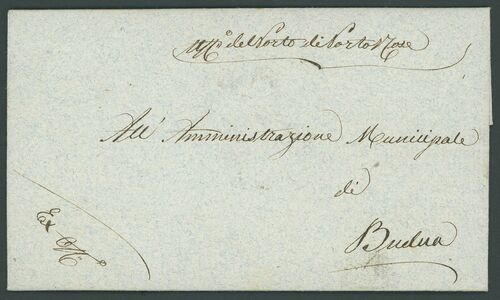 Uffo del Porto di Porto Rose
All' Amministrazione Municipale
di
Budua
Ex Offo